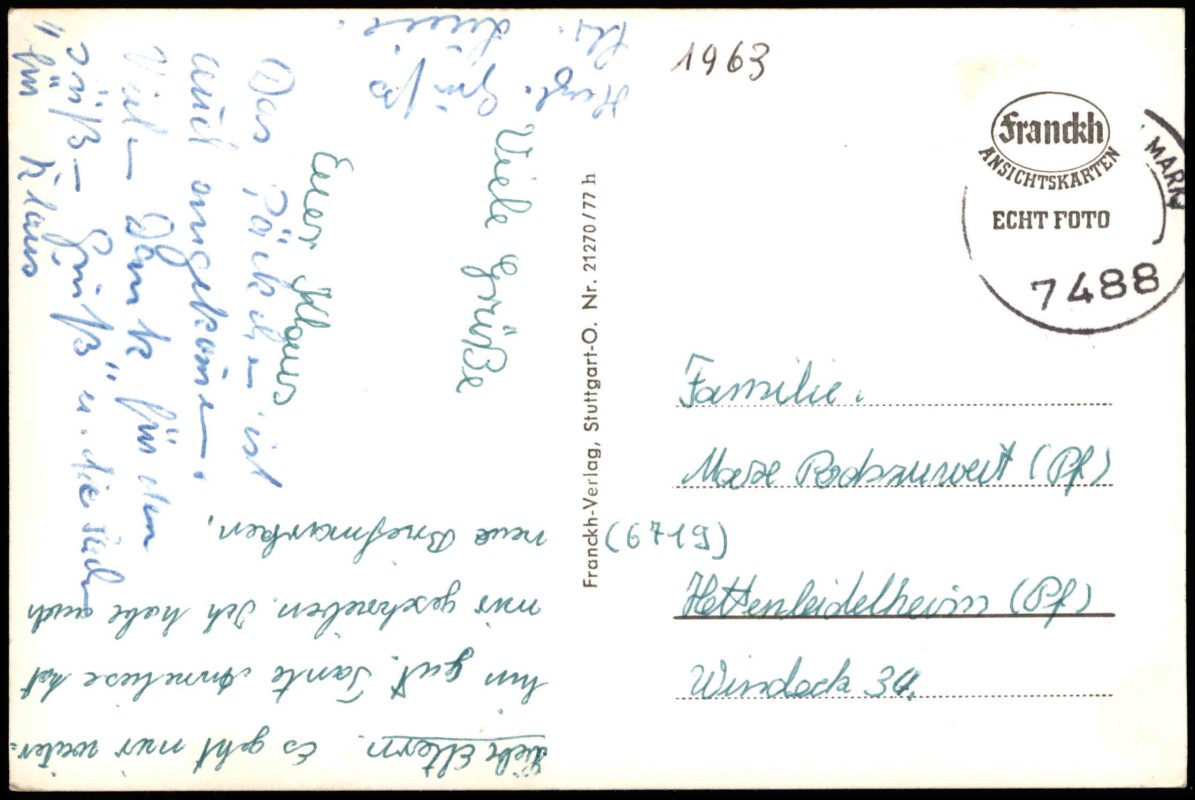 1963
Franckh
ANSICHTSKARTEN
ECHT FOTO
MARK
7488
Familie.
Max Podszuweit (Pf)
(6719)
Hettenleidelheim (Pf)
Windeck 34.
Franckh-Verlag, Stuttgart-O. Nr. 21270/77 h
Liebe Eltern. Es geht mir weiter=
hin gut. Tante Anneliese hat
mir geschrieben. Ich habe auch
neue Briefmarken.
Viele Grüße
Euer Klaus
Das Päckchen ist
auch angekommen.
Vielen Dank für den
"Grüß
u. die
für Klaus
Herzl. Grüße